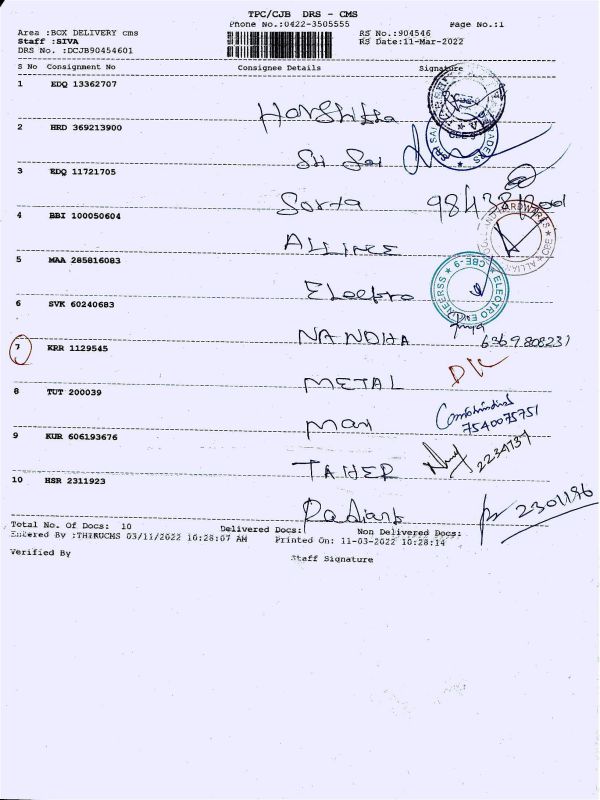 TPC/CJB DRS - CMS
Phone No.:0422-3505555 Page No.:1
Area :BOX DELIVERY cms RS No.:904546
Staff :SIVA RS Date:11-Mar-2022
DRS No. :DCJB90454601
S No Consignment No Consignee Details Signature
1 EDQ 13362707
Harshitha
2 HRD 369213900
Sri Sai
3 EDQ 11721705
98433
4 BBI 100050604
ALLINCE
5 MAA 285816083
Electro
ELEOTRO ENGINEERSS ★ CBE-9 ★
6 SVK 60240683
NANDHA 6369808231
7 KRR 1129545
METAL
8 TUT 200039
Man 7540075751
9 KUR 606193676
TAHER 2234737
10 HSR 2311923
Radiant 2301196
Total No. Of Docs: 10 Delivered Docs: Non Delivered Docs:
Entered By :THIRUCMS 03/11/2022 10:28:07 AM Printed On: 11-03-2022 10:28:14
Verified By Staff Signature